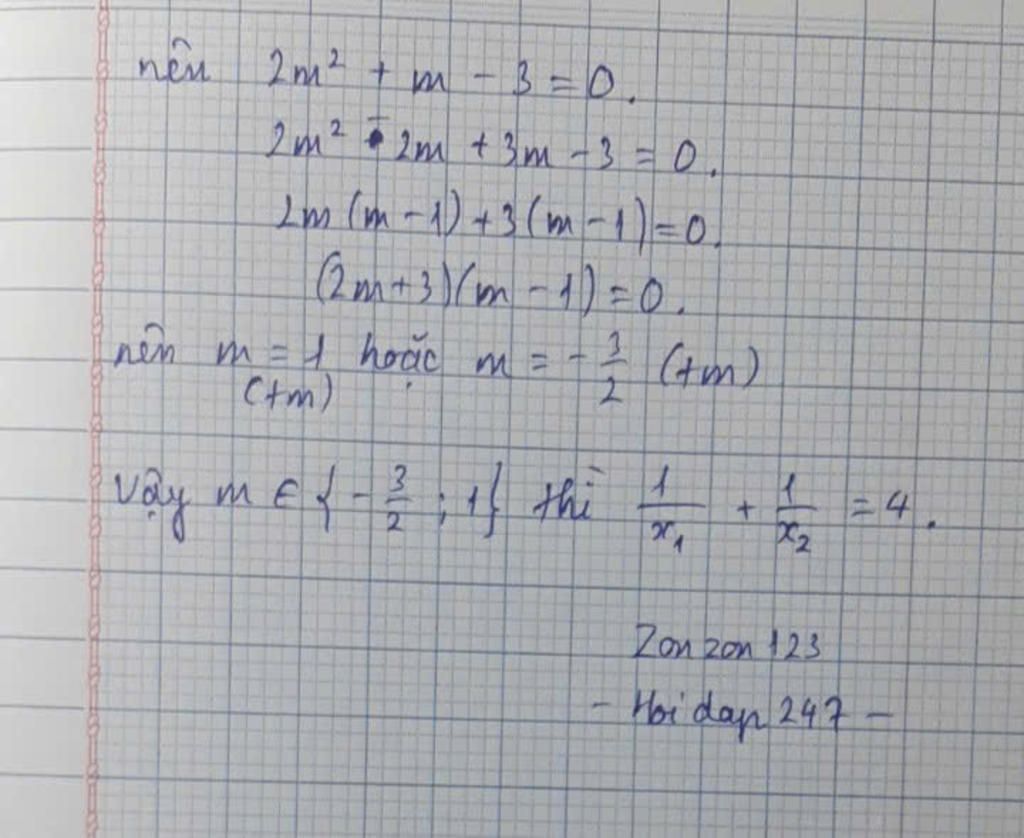 nên 2m² + m - 3 = 0.
2m² - 2m + 3m - 3 = 0.
2m (m - 1) + 3 (m - 1) = 0.
(2m + 3)(m - 1) = 0.
nên m = 1 hoặc m = - 3/2 (+m)
(+m)
Vậy m ∈ { - 3/2 ; 1} thì 1/x₁ + 1/x₂ = 4.
Zon zon 123
- Hoi dap 247 -